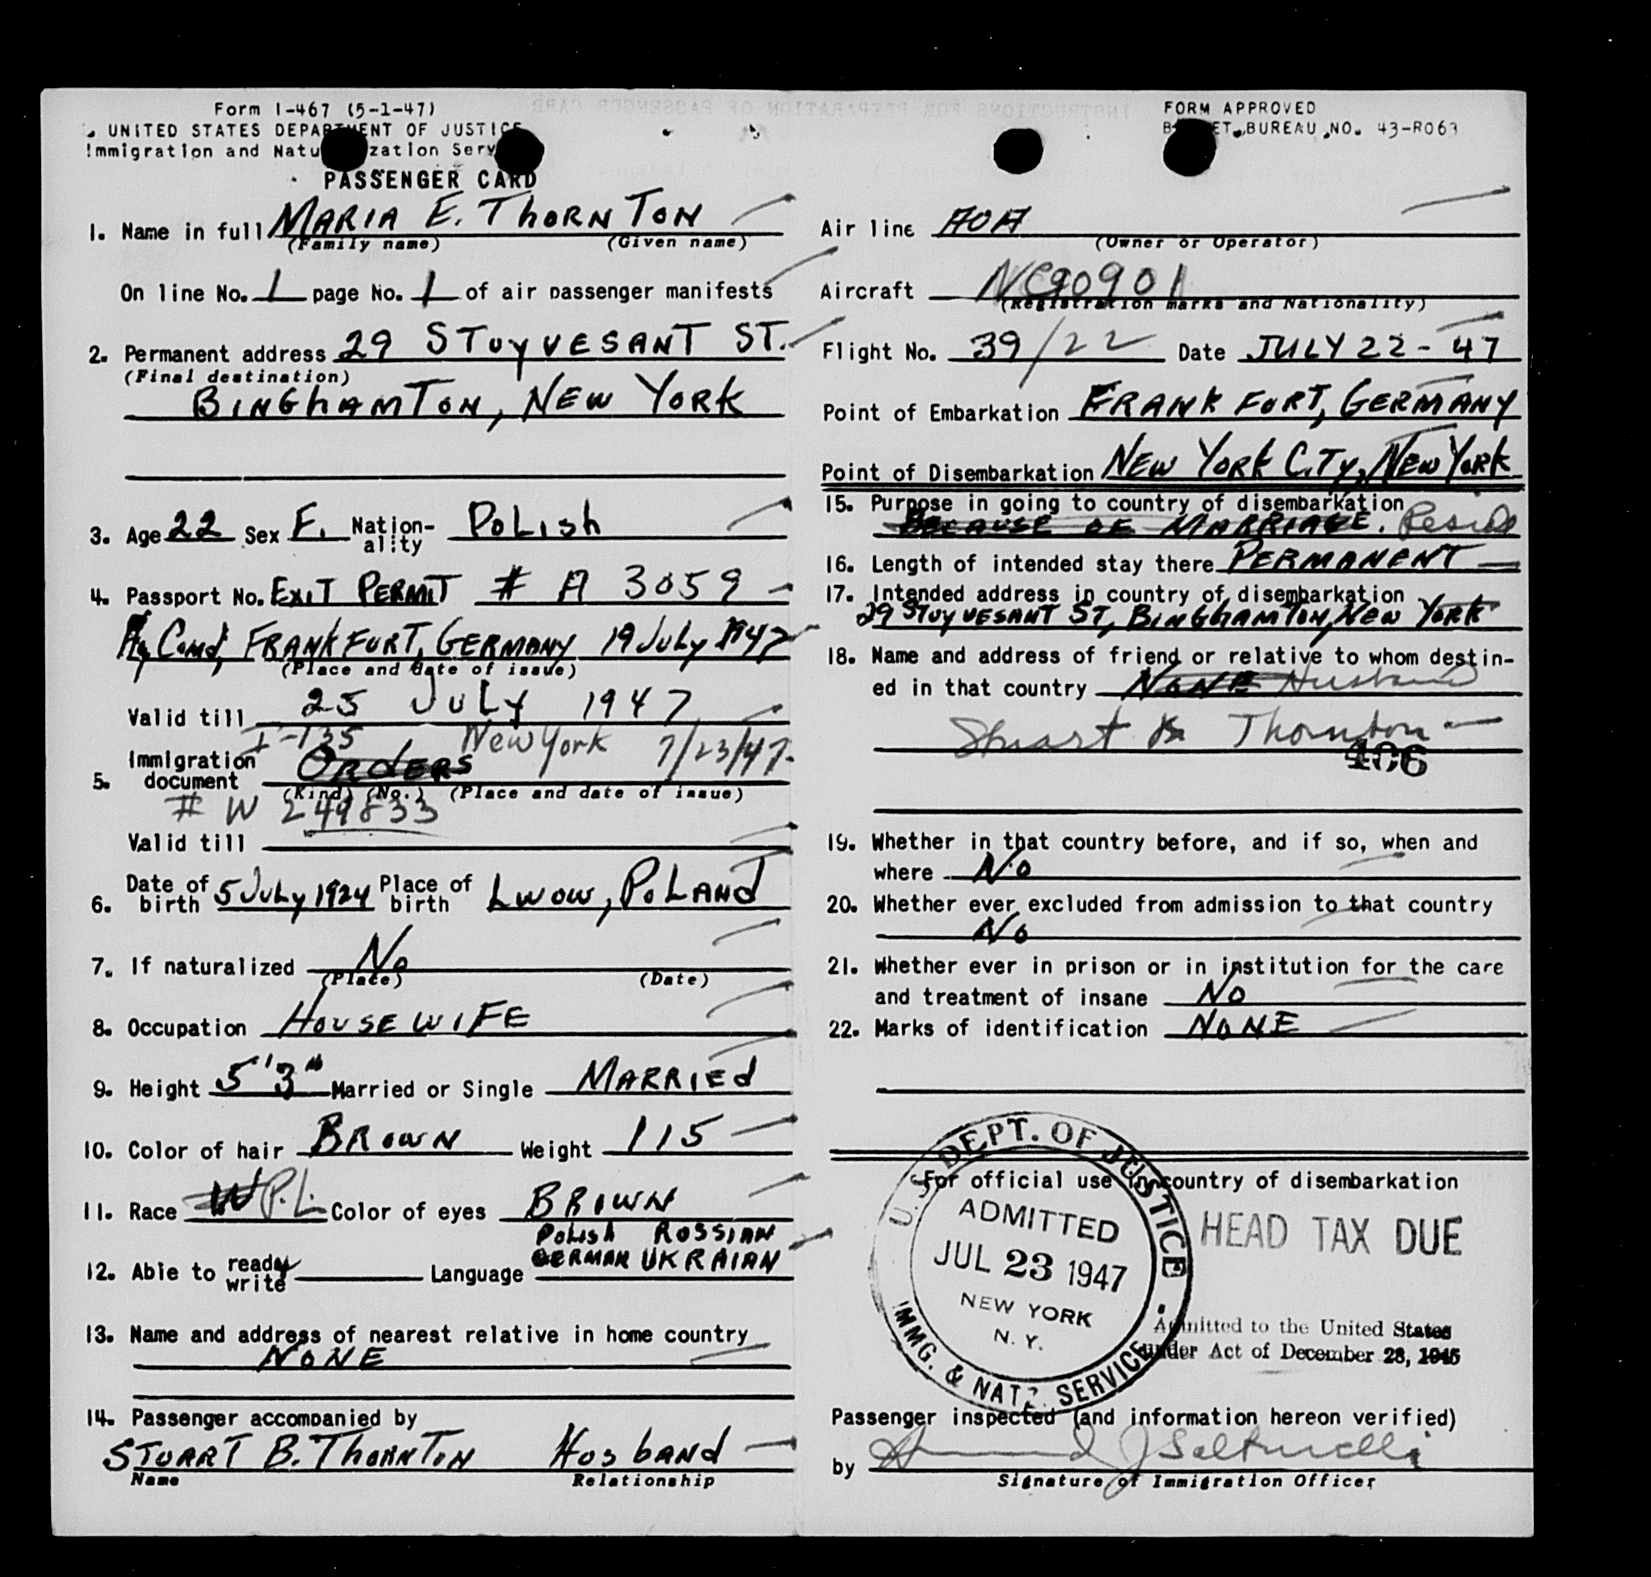 Form I-467 (5-1-47)
UNITED STATES DEPARTMENT OF JUSTICE
Immigration and Naturalization Serv
PASSENGER CARD
1. Name in full MARIA E. THORNTON
(Family name) (Given name)
On line No. 1 page No. 1 of air passenger manifests
2. Permanent address 29 STUYVESANT ST.
(Final destination)
BINGHAMTON, NEW YORK
3. Age 22 Sex F. Nation-ality POLISH
4. Passport No. EXIT PERMIT # A 3059
Hq Comd, FRANKFURT, GERMANY 19 JULY 1947
(Place and date of issue)
Valid till 25 JULY 1947
I-135 New York 7/23/47
5. Immigration document ORDERS
(Kind) (No.) (Place and date of issue)
# W 249833
Valid till
6. Date of birth 5 JULY 1924 Place of birth LWOW, POLAND
7. If naturalized No
(Place) (Date)
8. Occupation HOUSEWIFE
9. Height 5'3" Married or Single MARRIED
10. Color of hair BROWN Weight 115
11. Race W P.L. Color of eyes BROWN
POLISH ROSSIAN
12. Able to read write Language GERMAN UKRAIAN
13. Name and address of nearest relative in home country
NONE
14. Passenger accompanied by
STUART B. THORNTON HUSBAND
Name Relationship
FORM APPROVED
B ET BUREAU NO. 43-R063
Air line AOA
(Owner or Operator)
Aircraft NC90901
(Registration marks and Nationality)
Flight No. 39/22 Date JULY 22-47
Point of Embarkation FRANKFURT, GERMANY
Point of Disembarkation NEW YORK CITY, NEW YORK
15. Purpose in going to country of disembarkation
BECAUSE OF MARRIAGE. Reside
16. Length of intended stay there PERMANENT
17. Intended address in country of disembarkation
29 STUYVESANT ST, BINGHAMTON, NEW YORK
18. Name and address of friend or relative to whom destin-
ed in that country NONE Husband
Stuart B Thornton
406
19. Whether in that country before, and if so, when and
where No
20. Whether ever excluded from admission to that country
No
21. Whether ever in prison or in institution for the care
and treatment of insane NO
22. Marks of identification NONE
For official use in country of disembarkation
U.S. DEPT. OF JUSTICE
ADMITTED
JUL 23 1947
NEW YORK
N. Y.
IMMG. & NATZ. SERVICE
HEAD TAX DUE
Admitted to the United States
under Act of December 28, 1945
Passenger inspected (and information hereon verified)
by
Signature of Immigration Officer